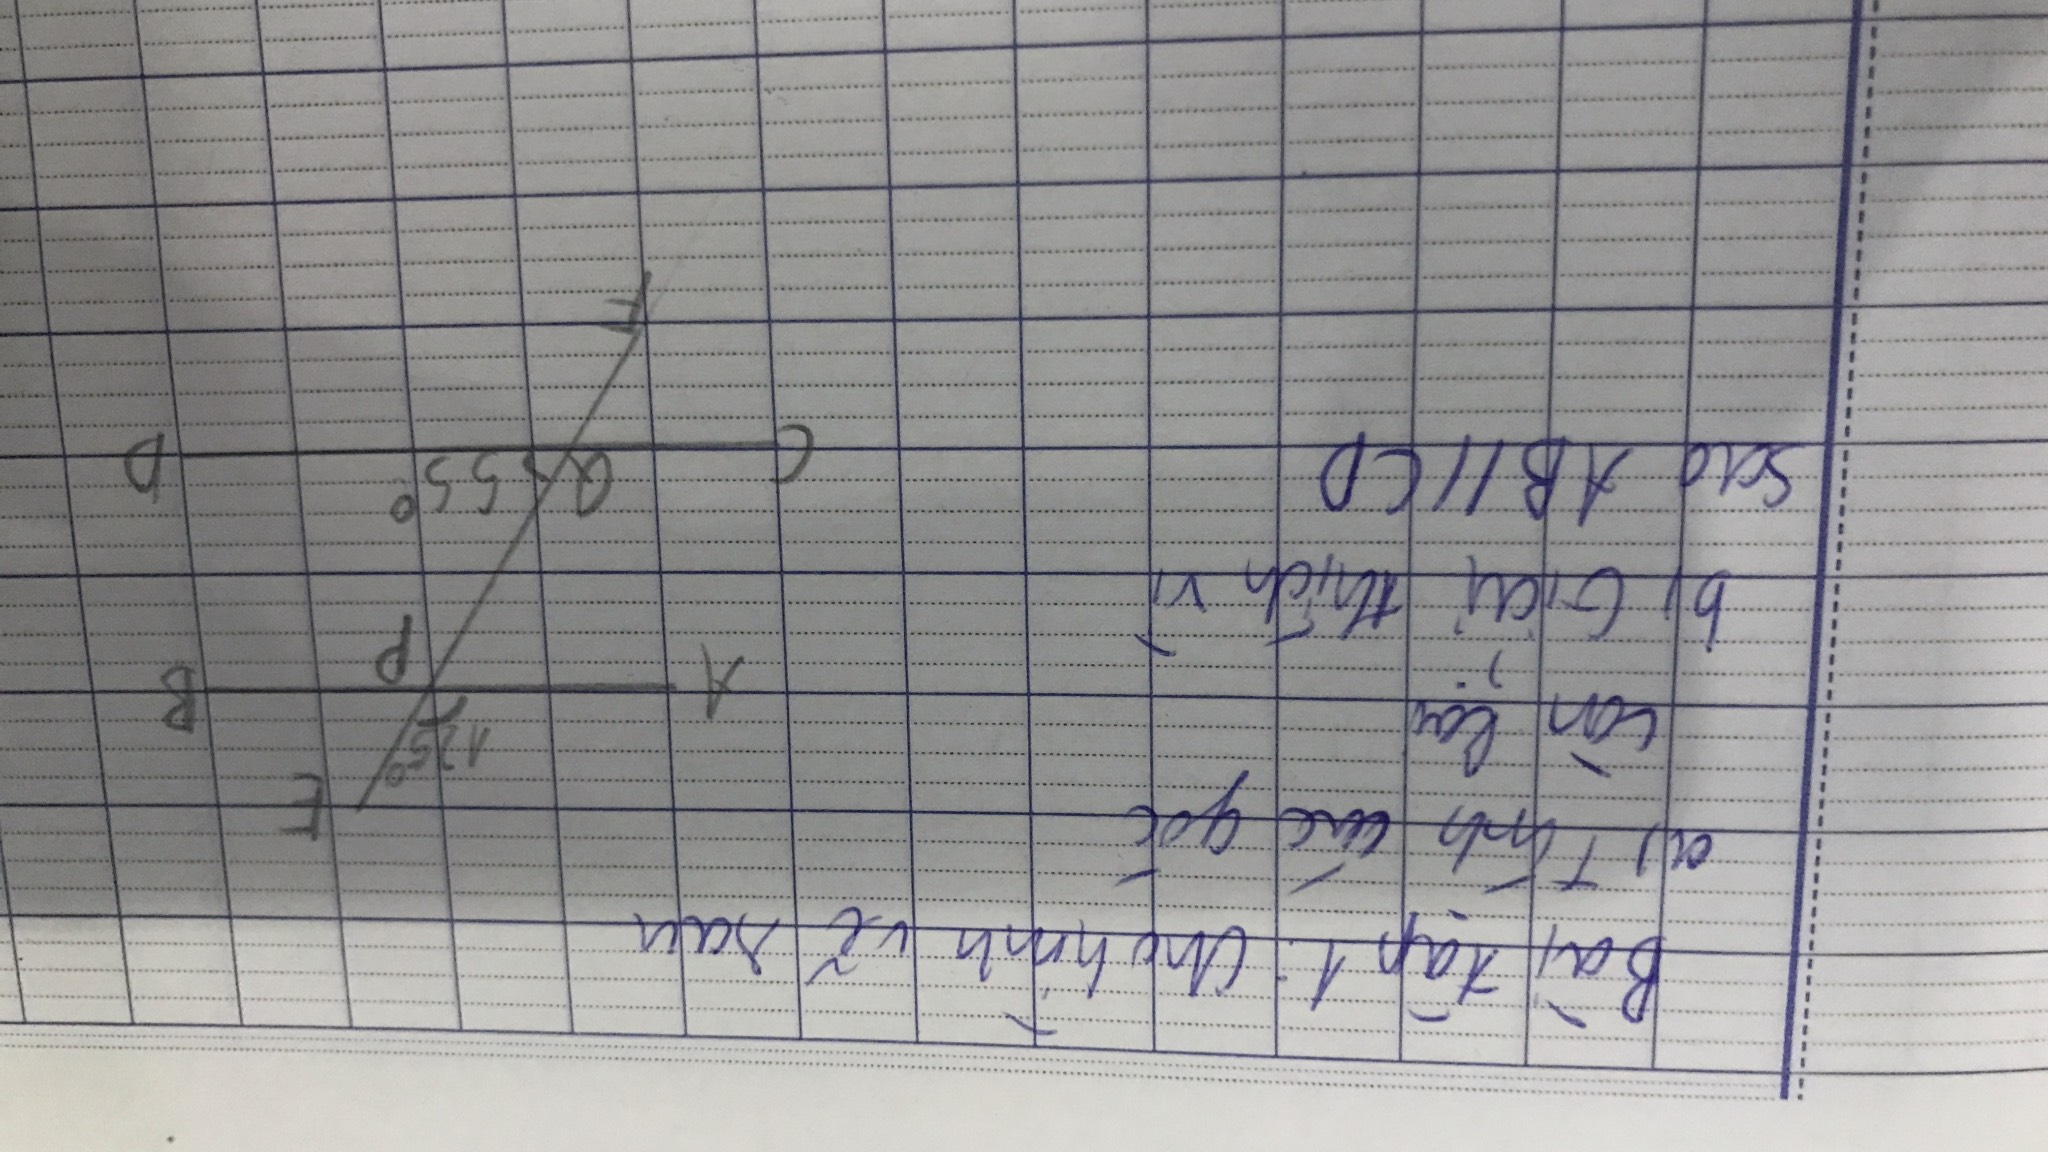 Bài tập 1: Cho hình vẽ sau
a) Tính các góc
còn lại;
b) Giải thích vì
sao AB//CD
E
125°
A
P
B
C
Q
55°
D
F